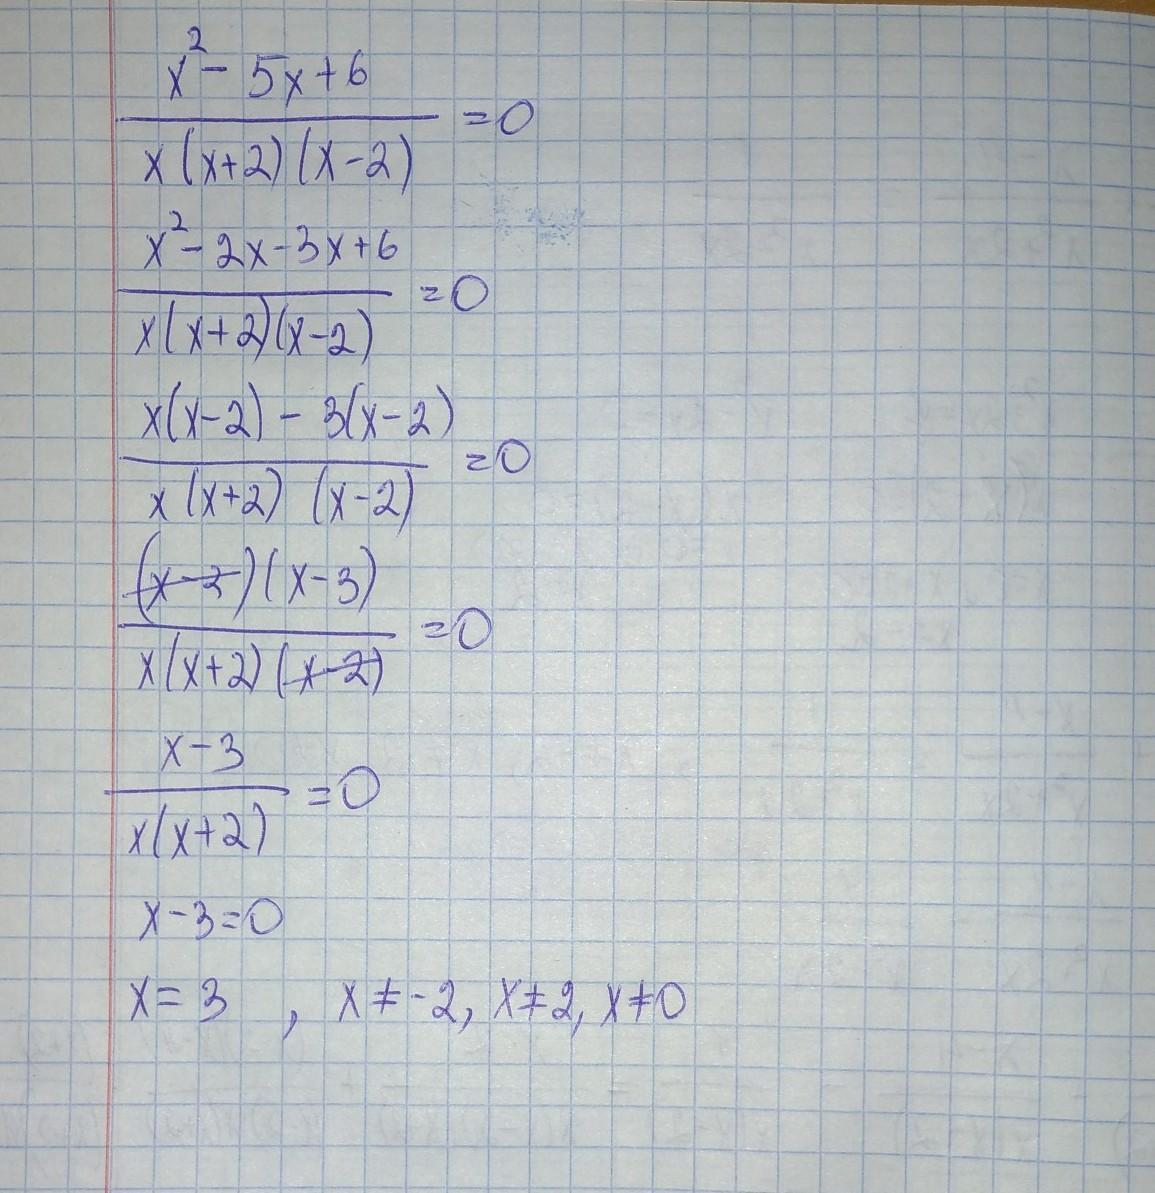 x² - 5x + 6
x(x+2)(x-2)
=0
x² - 2x - 3x + 6
x(x+2)(x-2)
=0
x(x-2) - 3(x-2)
x(x+2)(x-2)
=0
(x-2)(x-3)
x(x+2)(x-2)
=0
x-3
x(x+2)
=0
x-3=0
x=3, x≠-2, x≠2, x≠0